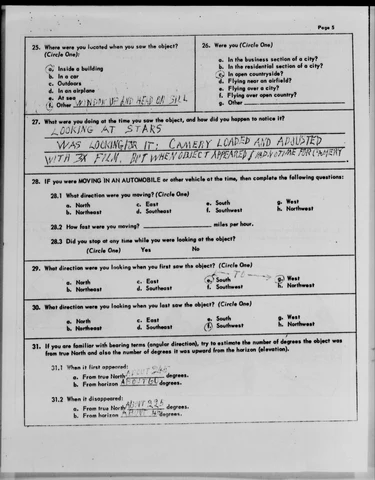 Page 5
25. Where were you located when you saw the object?
(Circle One):
a. Inside a building
b. In a car
c. Outdoors
d. In an airplane
e. At sea
f. Other WINDOW UP AND HEAD ON SILL
26. Were you (Circle One)
a. In the business section of a city?
b. In the residential section of a city?
c. In open countryside?
d. Flying near an airfield?
e. Flying over a city?
f. Flying over open country?
g. Other
27. What were you doing at the time you saw the object, and how did you happen to notice it?
LOOKING AT STARS
WAS LOOKING FOR IT; CAMERY LOADED AND ADJUSTED
WITH 3X FILM. BUT WHEN OBJECT APPEARED I HAD NO TIME FOR CAMERY
28. IF you were MOVING IN AN AUTOMOBILE or other vehicle at the time, then complete the following questions:
28.1 What direction were you moving? (Circle One)
a. North c. East e. South g. West
b. Northeast d. Southeast f. Southwest h. Northwest
28.2 How fast were you moving? miles per hour.
28.3 Did you stop at any time while you were looking at the object?
(Circle One) Yes No
29. What direction were you looking when you first saw the object? (Circle One)
a. North c. East e. South TO g. West
b. Northeast d. Southeast f. Southwest h. Northwest
30. What direction were you looking when you last saw the object? (Circle One)
a. North c. East e. South g. West
b. Northeast d. Southeast f. Southwest h. Northwest
31. If you are familiar with bearing terms (angular direction), try to estimate the number of degrees the object was
from true North and also the number of degrees it was upward from the horizon (elevation).
31.1 When it first appeared:
a. From true North ABOUT degrees.
b. From horizon ABOUT degrees.
31.2 When it disappeared:
a. From true North ABOUT 225 degrees.
b. From horizon ABOUT degrees.